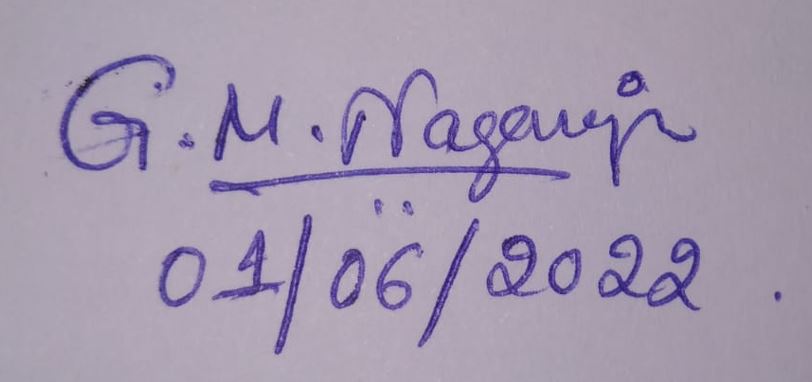 G.M. Nagaraja
01/06/2022.